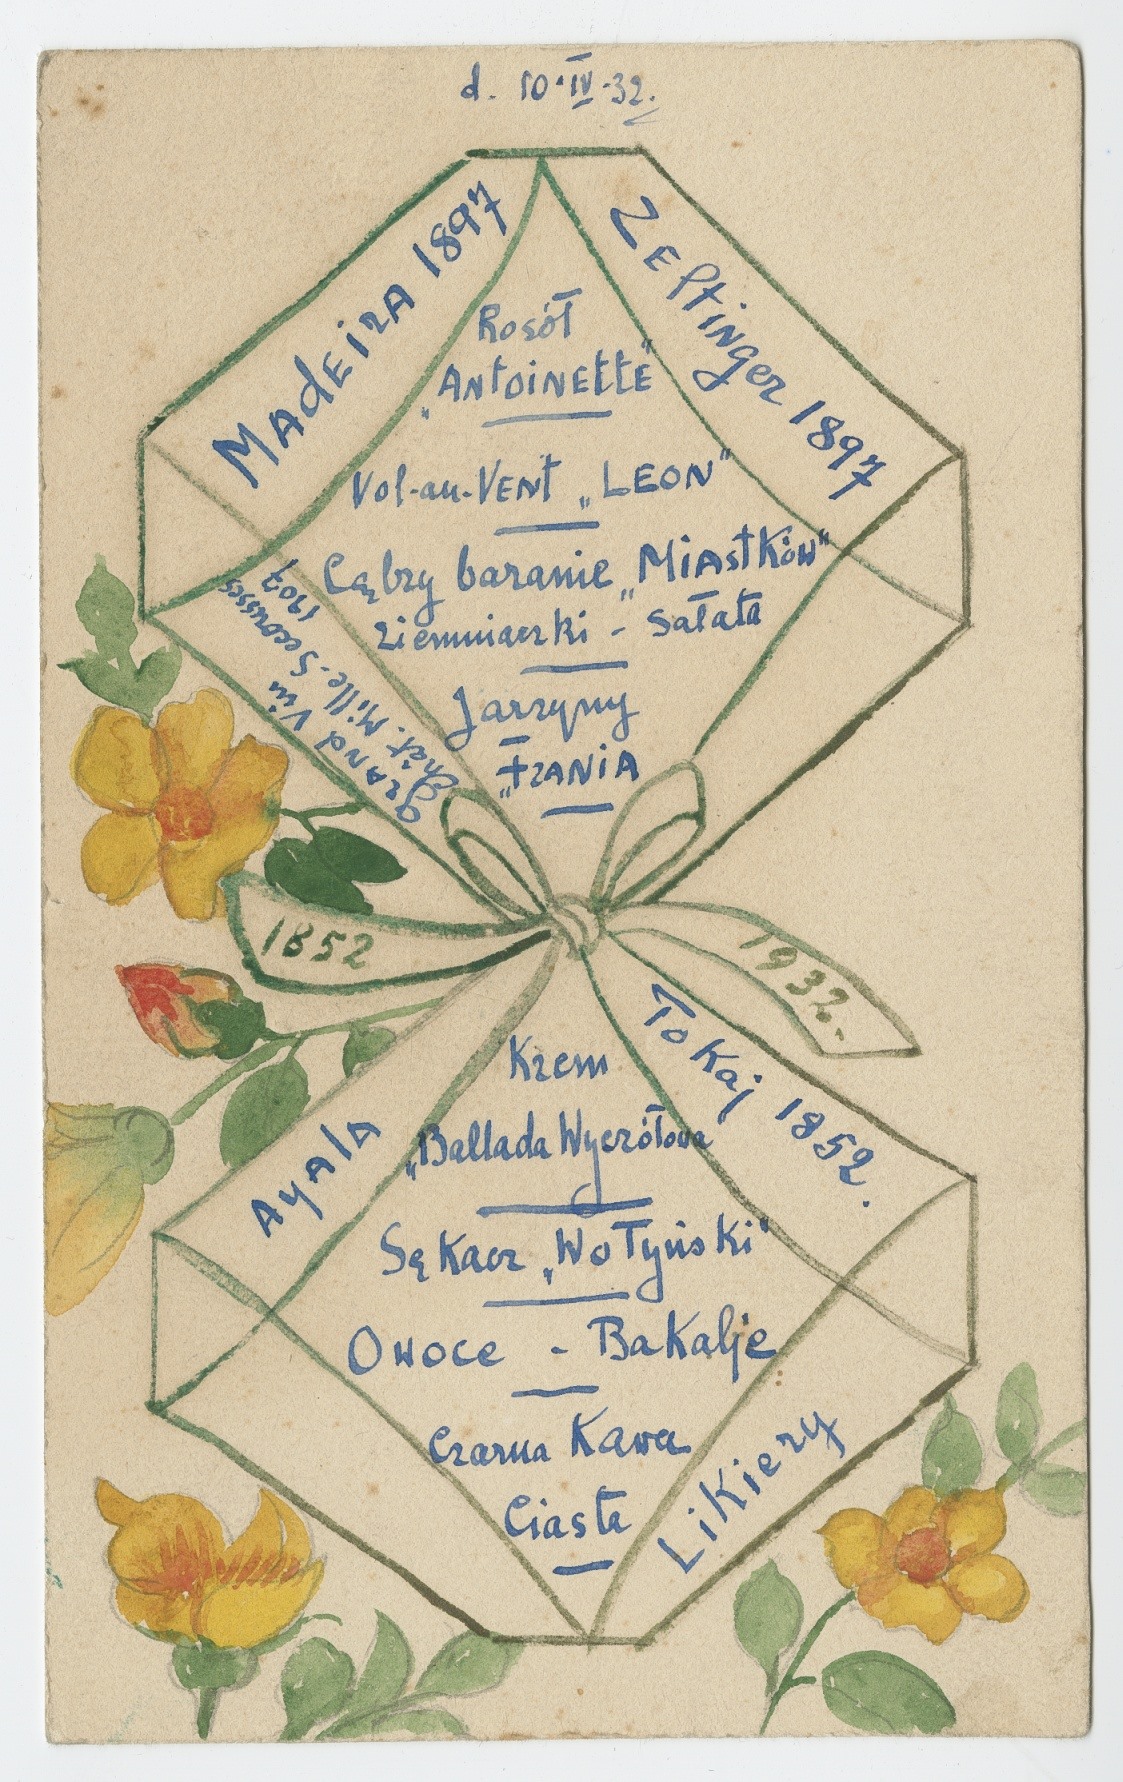 d. 10·IV·32.
Madeira 1897
Zeltinger 1897
Rosół
„Antoinette"
Vol-au-Vent „LEON"
Cąbry baranie „Miastków"
ziemniaczki - Sałata
Jarzyny
„Frania"
Grand Vin
Chât. Mille-Secousses
1907
1852
1932.-
Krem
„Ballada Wyczółowa
Tokaj 1852.
Ayala
Sękacz „Wołyński"
Owoce - Bakalje
Czarna Kawa
Ciasta
Likiery